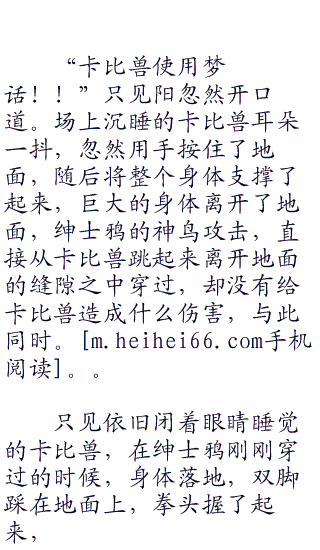 “卡比兽使用梦
话！！”只见阳忽然开口
道。场上沉睡的卡比兽耳朵
一抖，忽然用手按住了地
面，随后将整个身体支撑了
起来，巨大的身体离开了地
面，绅士鸦的神鸟攻击，直
接从卡比兽跳起来离开地面
的缝隙之中穿过，却没有给
卡比兽造成什么伤害，与此
同时。[m.heihei66.com手机
阅读]。。
只见依旧闭着眼睛睡觉
的卡比兽，在绅士鸦刚刚穿
过的时候，身体落地，双脚
踩在地面上，拳头握了起
来，